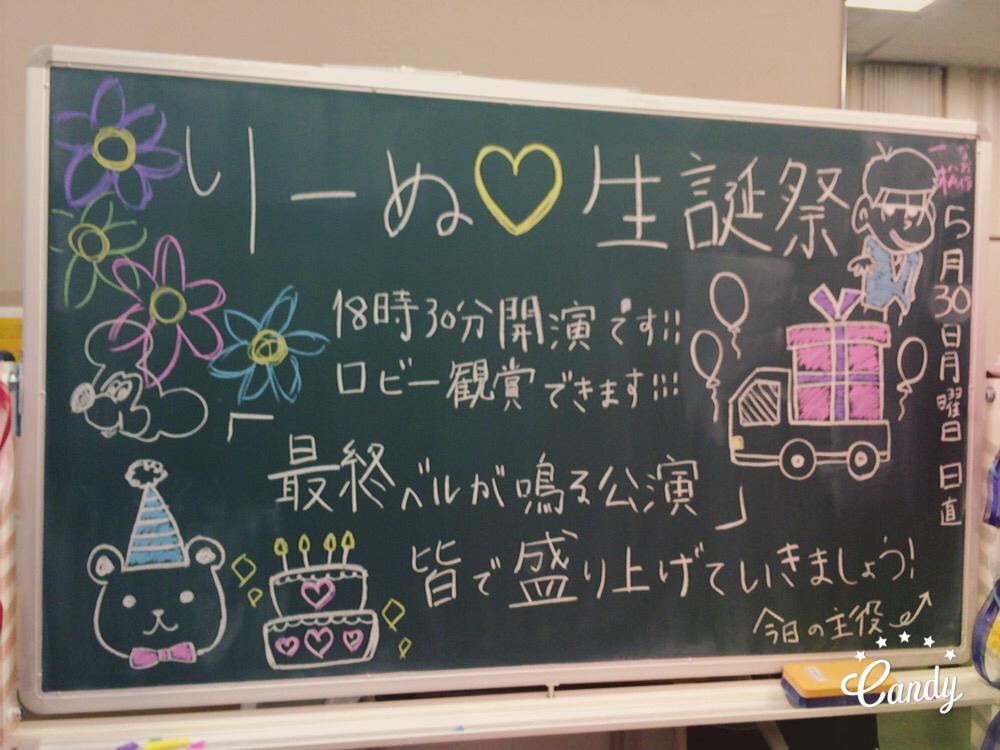 りーぬ♡生誕祭
18時30分開演です!!
ロビー観賞できます!!!
「最終ベルが鳴る公演」
皆で盛り上げていきましょう!
今日の主役
5月30日月曜日 日直
Candy